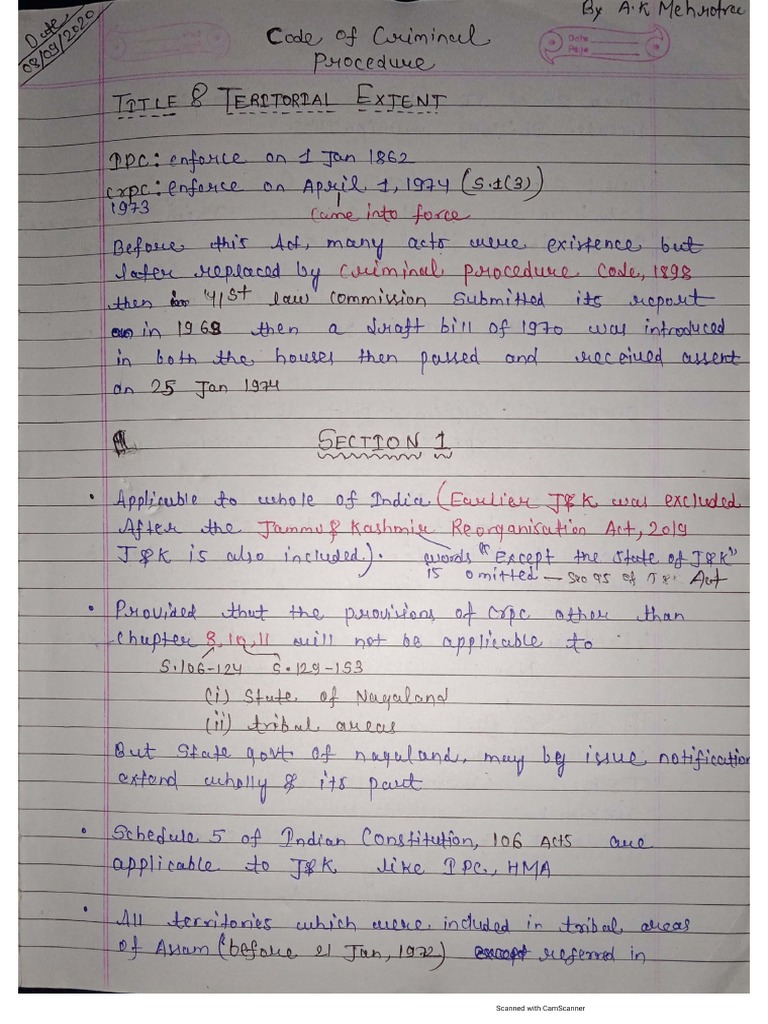 Date
08/09/2020
By A.K Mehrotra
Code of Criminal
Procedure
Date
Page
TITLE & TERITORIAL EXTENT
IPC: enforce on 1 Jan 1862
CrPC: enforce on April 1, 1974 (S.1(3))
1973
Came into force
Before this Act, many acts were existence but
later replaced by Criminal Procedure Code, 1898
then 41st law commission submitted its report
in 1969 then a draft bill of 1970 was introduced
in both the houses then passed and received assent
on 25 Jan 1974
SECTION 1
• Applicable to whole of India (Earlier J&K was excluded
After the Jammu & Kashmir Reorganisation Act, 2019
J&K is also included).
words "Except the State of J&K"
is omitted — Sec 95 of J&K Act
• Provided that the provisions of crpc other than
Chapter 8, 10, 11 will not be applicable to
S.106-124 S.129-153
(i) State of Nagaland
(ii) tribal areas
But State govt of nagaland, may by issue notification
extend wholly & its part
• Schedule 5 of Indian Constitution, 106 Acts are
applicable to J&K like IPC, HMA
• All territories which were included in tribal areas
of Assam (before 21 Jan, 1972) referred in
Scanned with CamScanner